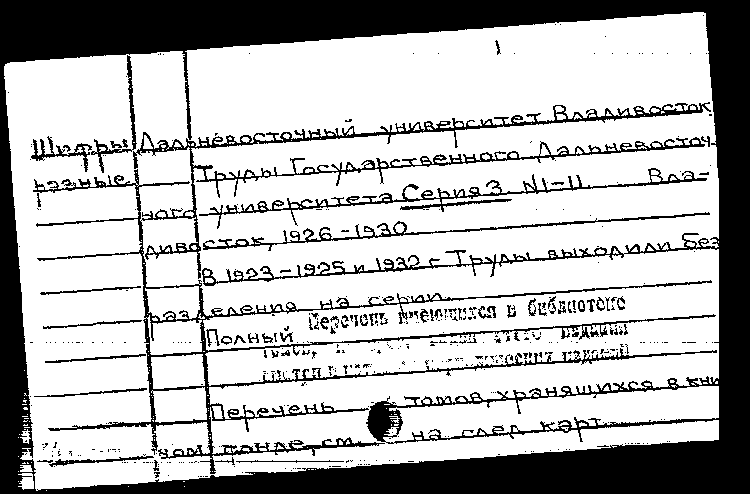 1
Шифры Дальневосточный университет Владивосток.
разные Труды Государственного Дальневосточ-
ного университета Серия 3. N1-11. Вла-
дивосток, 1926.-1930.
В 1923-1925 и 1932 г Труды выходили без
разделения на серии.
Полный Перечень имеющихся в библиотеке
издания
изданий
Перечень томов, хранящихся в кни
ном фонде, см. на след карт